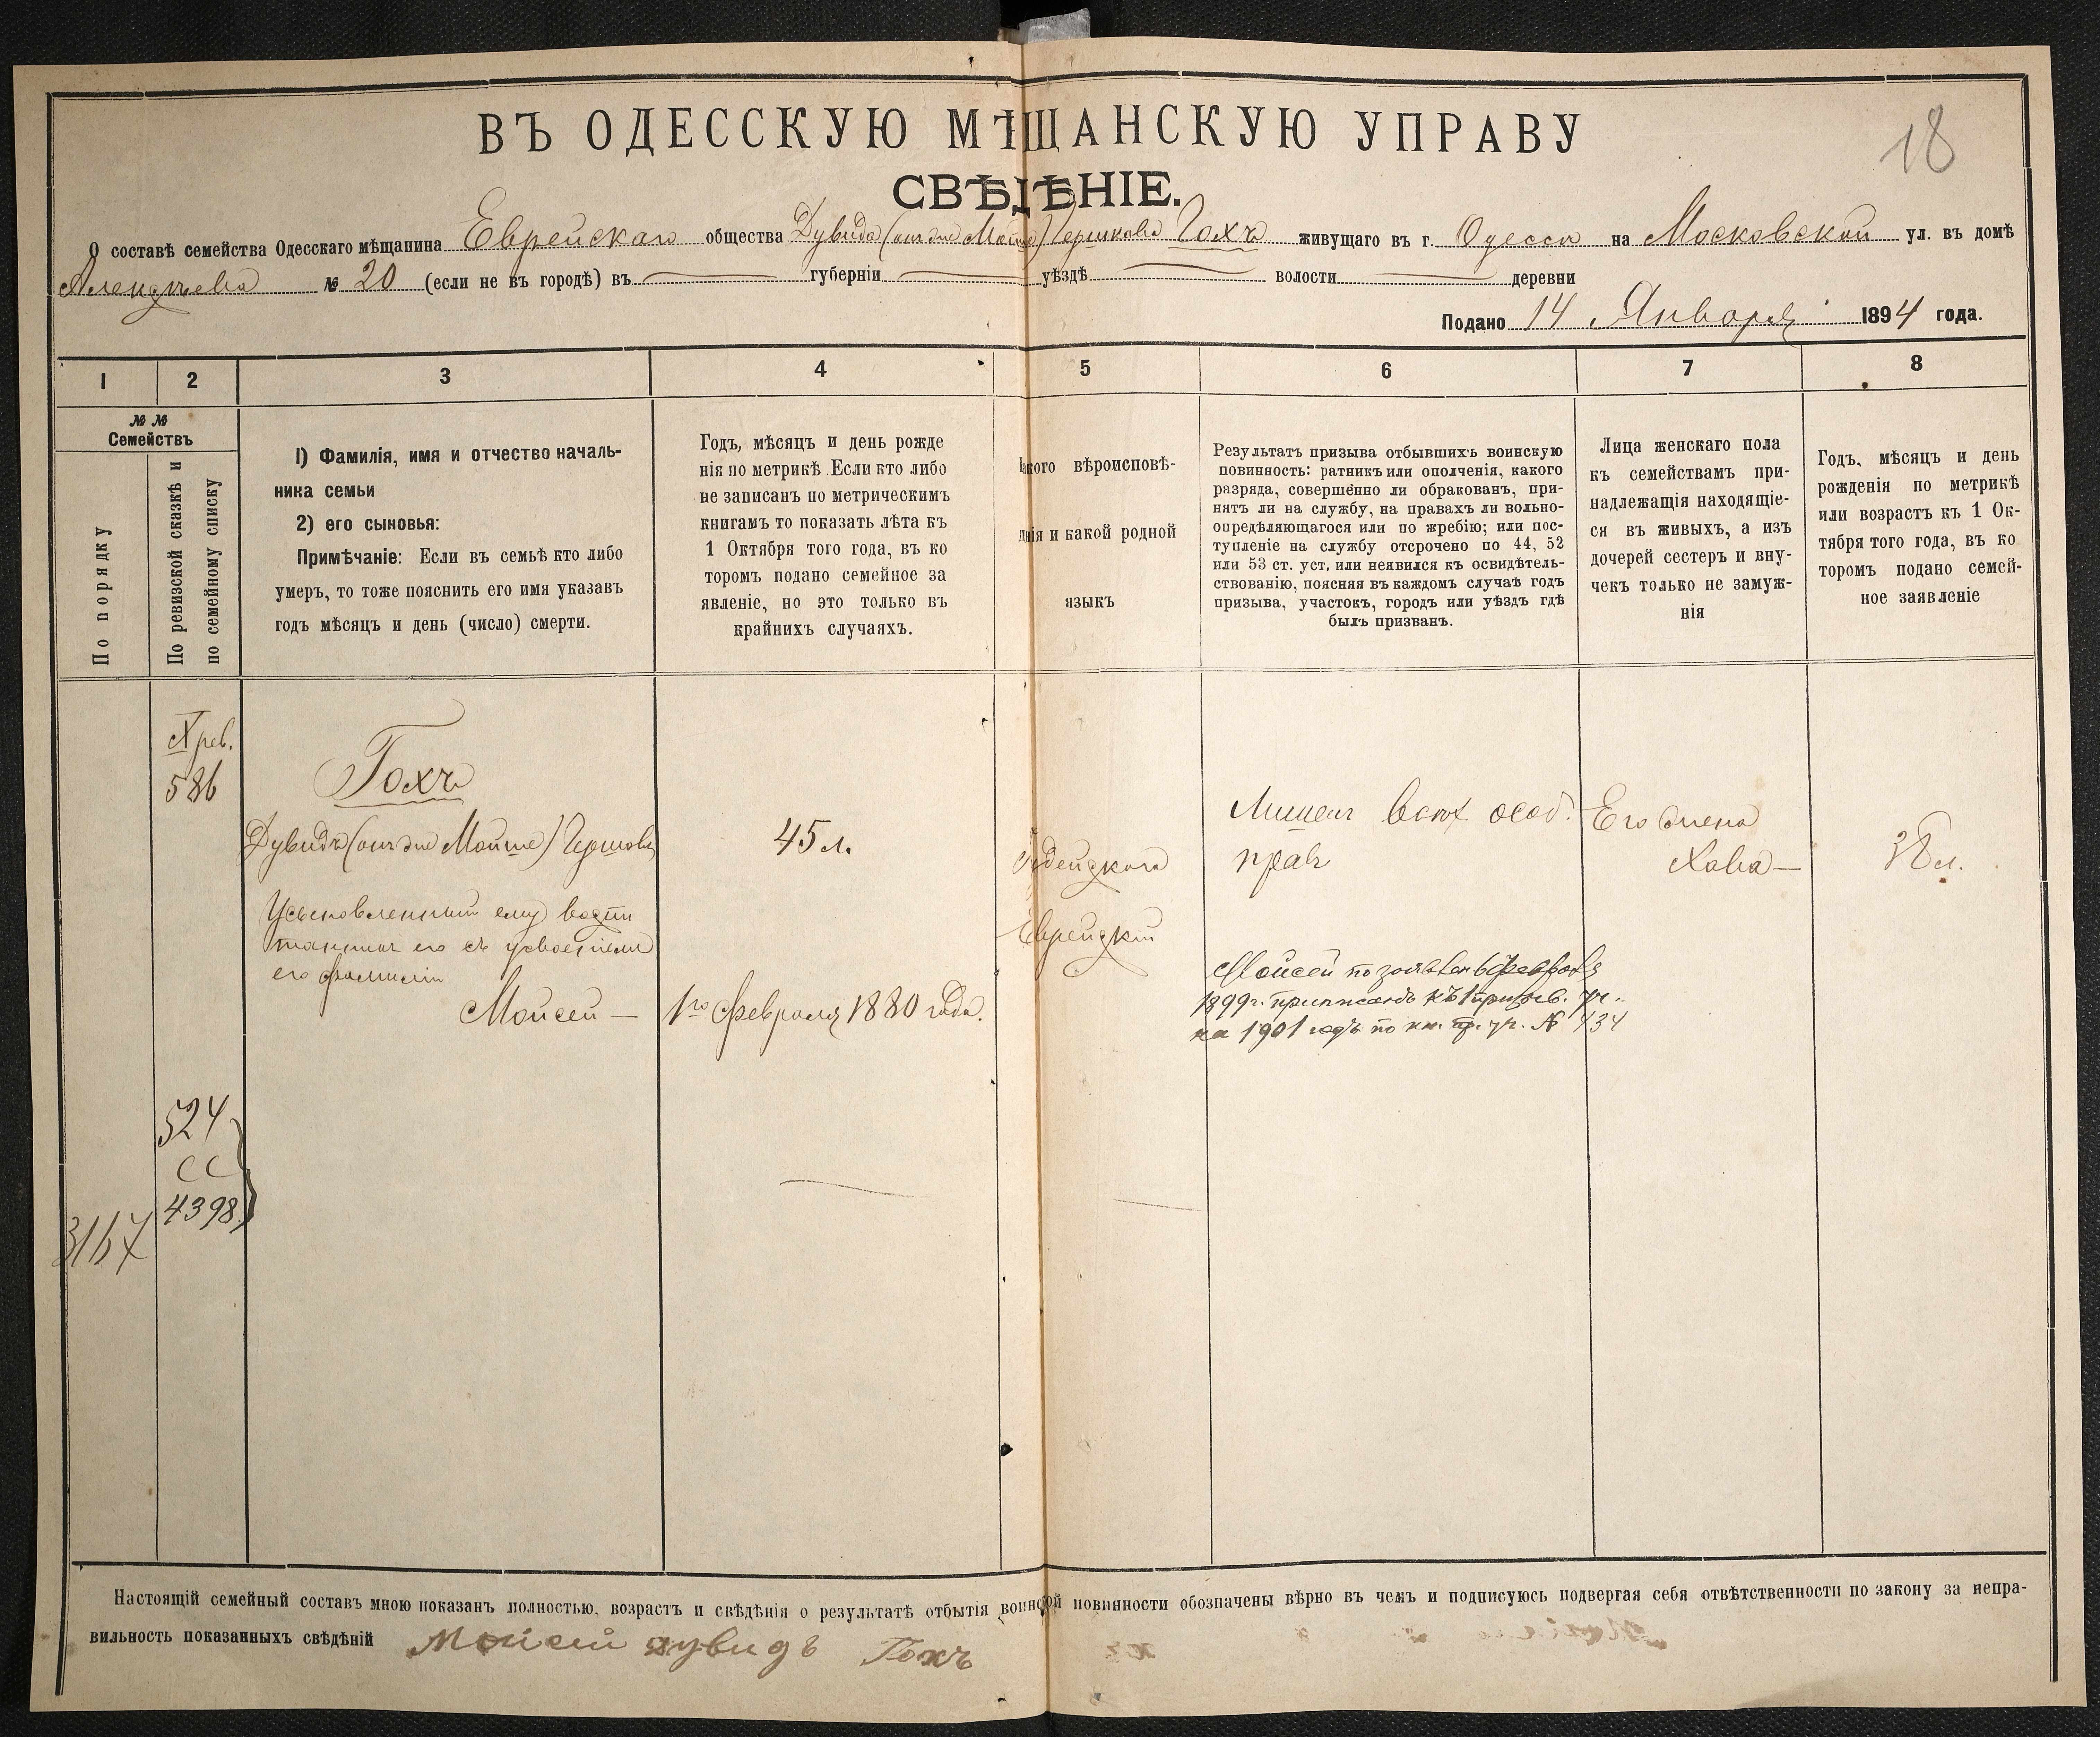 18
ВЪ ОДЕССКУЮ МѢЩАНСКУЮ УПРАВУ
СВѢДѢНІЕ.
О составѣ семейства Одесскаго мѣщанина Еврейскаго общества Дувида (онъ же Мойше) Гершкова Гохъ живущаго въ г. Одессѣ на Московской ул. въ домѣ
№ 20 (если не въ городѣ) въ губерніи уѣздѣ волости деревни
Подано 14 Января 1894 года.
1 2 3 4 5 6 7 8
№ №
Семействъ
По порядку
По ревизской сказкѣ и
по семейному списку
1) Фамилія, имя и отчество началь-
ника семьи
2) его сыновья:
Примѣчаніе: Если въ семьѣ кто либо
умеръ, то тоже пояснить его имя указавъ
годъ мѣсяцъ и день (число) смерти.
Годъ, мѣсяцъ и день рожде
нія по метрикѣ. Если кто либо
не записанъ по метрическимъ
книгамъ то показать лѣта къ
1 Октября того года, въ ко
торомъ подано семейное за
явленіе, но это только въ
крайнихъ случаяхъ.
Какого вѣроисповѣ-
данія и какой родной
языкъ
Результатъ призыва отбывшихъ воинскую
повинность: ратникъ или ополченія, какого
разряда, совершенно ли обракованъ, при-
нятъ ли на службу, на правахъ ли вольно-
опредѣляющагося или по жребію; или пос-
тупленіе на службу отсрочено по 44, 52
или 53 ст. уст. или неявился къ освидѣтель-
ствованію, поясняя въ каждомъ случаѣ годъ
призыва, участокъ, городъ или уѣздъ гдѣ
былъ призванъ.
Лица женскаго пола
къ семействамъ при-
надлежащія находящіе-
ся въ живыхъ, а изъ
дочерей сестеръ и вну-
чекъ только не замуж-
нія
Годъ, мѣсяцъ и день
рожденія по метрикѣ
или возрастъ къ 1 Ок-
тября того года, въ ко
торомъ подано семей-
ное заявленіе
X рев.
586
Гохъ
Дувидъ (онъ же Мойше) Гершковъ
45 л.
Іудейскаго
Еврейскій
Лишенъ всѣхъ особ.
правъ
Его жена
Хава —
38 л.
Усыновленный ему воспи
танникъ его съ усвоеніемъ
его фамиліи
Мойсей —
1го Февраля 1880 года.
Мойсей по заявлен 6 Февраля
1899 г. приписанъ къ 1 призыв. уч.
на 1901 годъ по кн. пр. уч. № 434
524
СС
4398
3167
Настоящій семейный составъ мною показанъ полностью, возрастъ и свѣдѣнія о результатѣ отбытія воинской повинности обозначены вѣрно въ чемъ и подписуюсь подвергая себя отвѣтственности по закону за непра-
вильность показанныхъ свѣдѣній Мойсей Дувидъ Гохъ